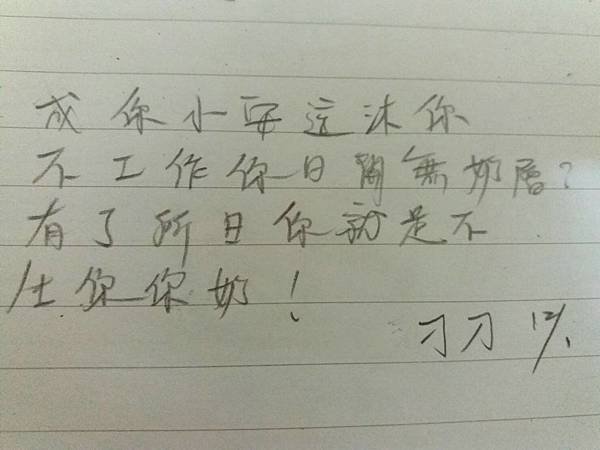 成你小安这沐你
不工作你日開無奶層?
有了所日你就是不
/土你你奶!
刁刁 12/1